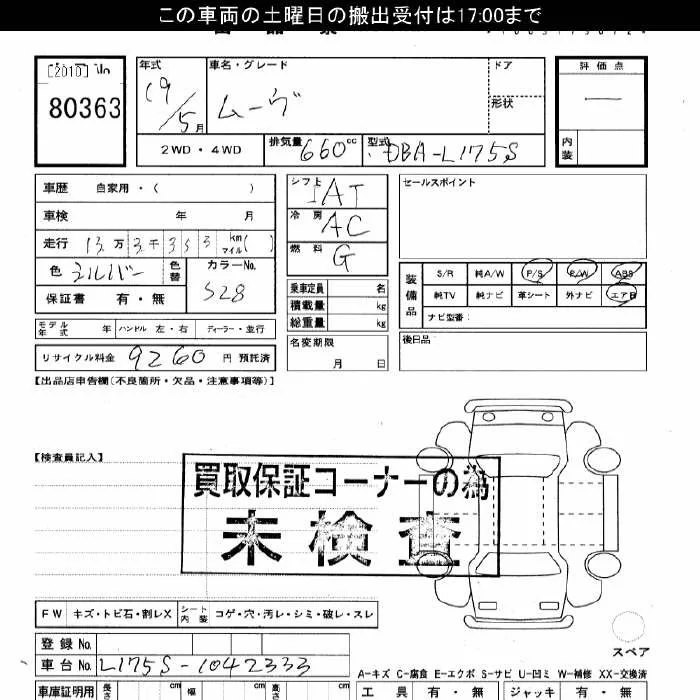 この車両の土曜日の搬出受付は17:00まで
[2010]
80363
年式
19/5月
車名・グレード
ムーヴ
ドア
形状
評価点
—
内装
2WD・4WD
排気量 660cc
型式 DBA-L175S
車歴 自家用・( )
車検 年 月
走行 13万3千353km マイル( )
色 シルバー
色替
カラーNo. S28
保証書 有・無
シフト IAT
冷房 AC
燃料 G
乗車定員 名
積載量 kg
総重量 kg
名変期限
月 日
セールスポイント
装備品
S/R 純A/W P/S P/W ABS
純TV 純ナビ 革シート 外ナビ エアB
ナビ型番:
後日品
モデル年式 年 ハンドル 左・右 ディーラー・並行
リサイクル料金 9260 円 預託済
【出品店申告欄(不良箇所・欠品・注意事項等)】
【検査員記入】
買取保証コーナーの為
未検査
FW キズ・トビ石・割レX シート内装 コゲ・穴・汚レ・シミ・破レ・スレ
スペア
登録No.
車台No. L175S-1042333
A-キズ C-腐食 E-エクボ S-サビ U-凹ミ W-補修 XX-交換済
車庫証明用 長さ cm 幅 cm 高さ cm
工具 有・無 ジャッキ 有・無